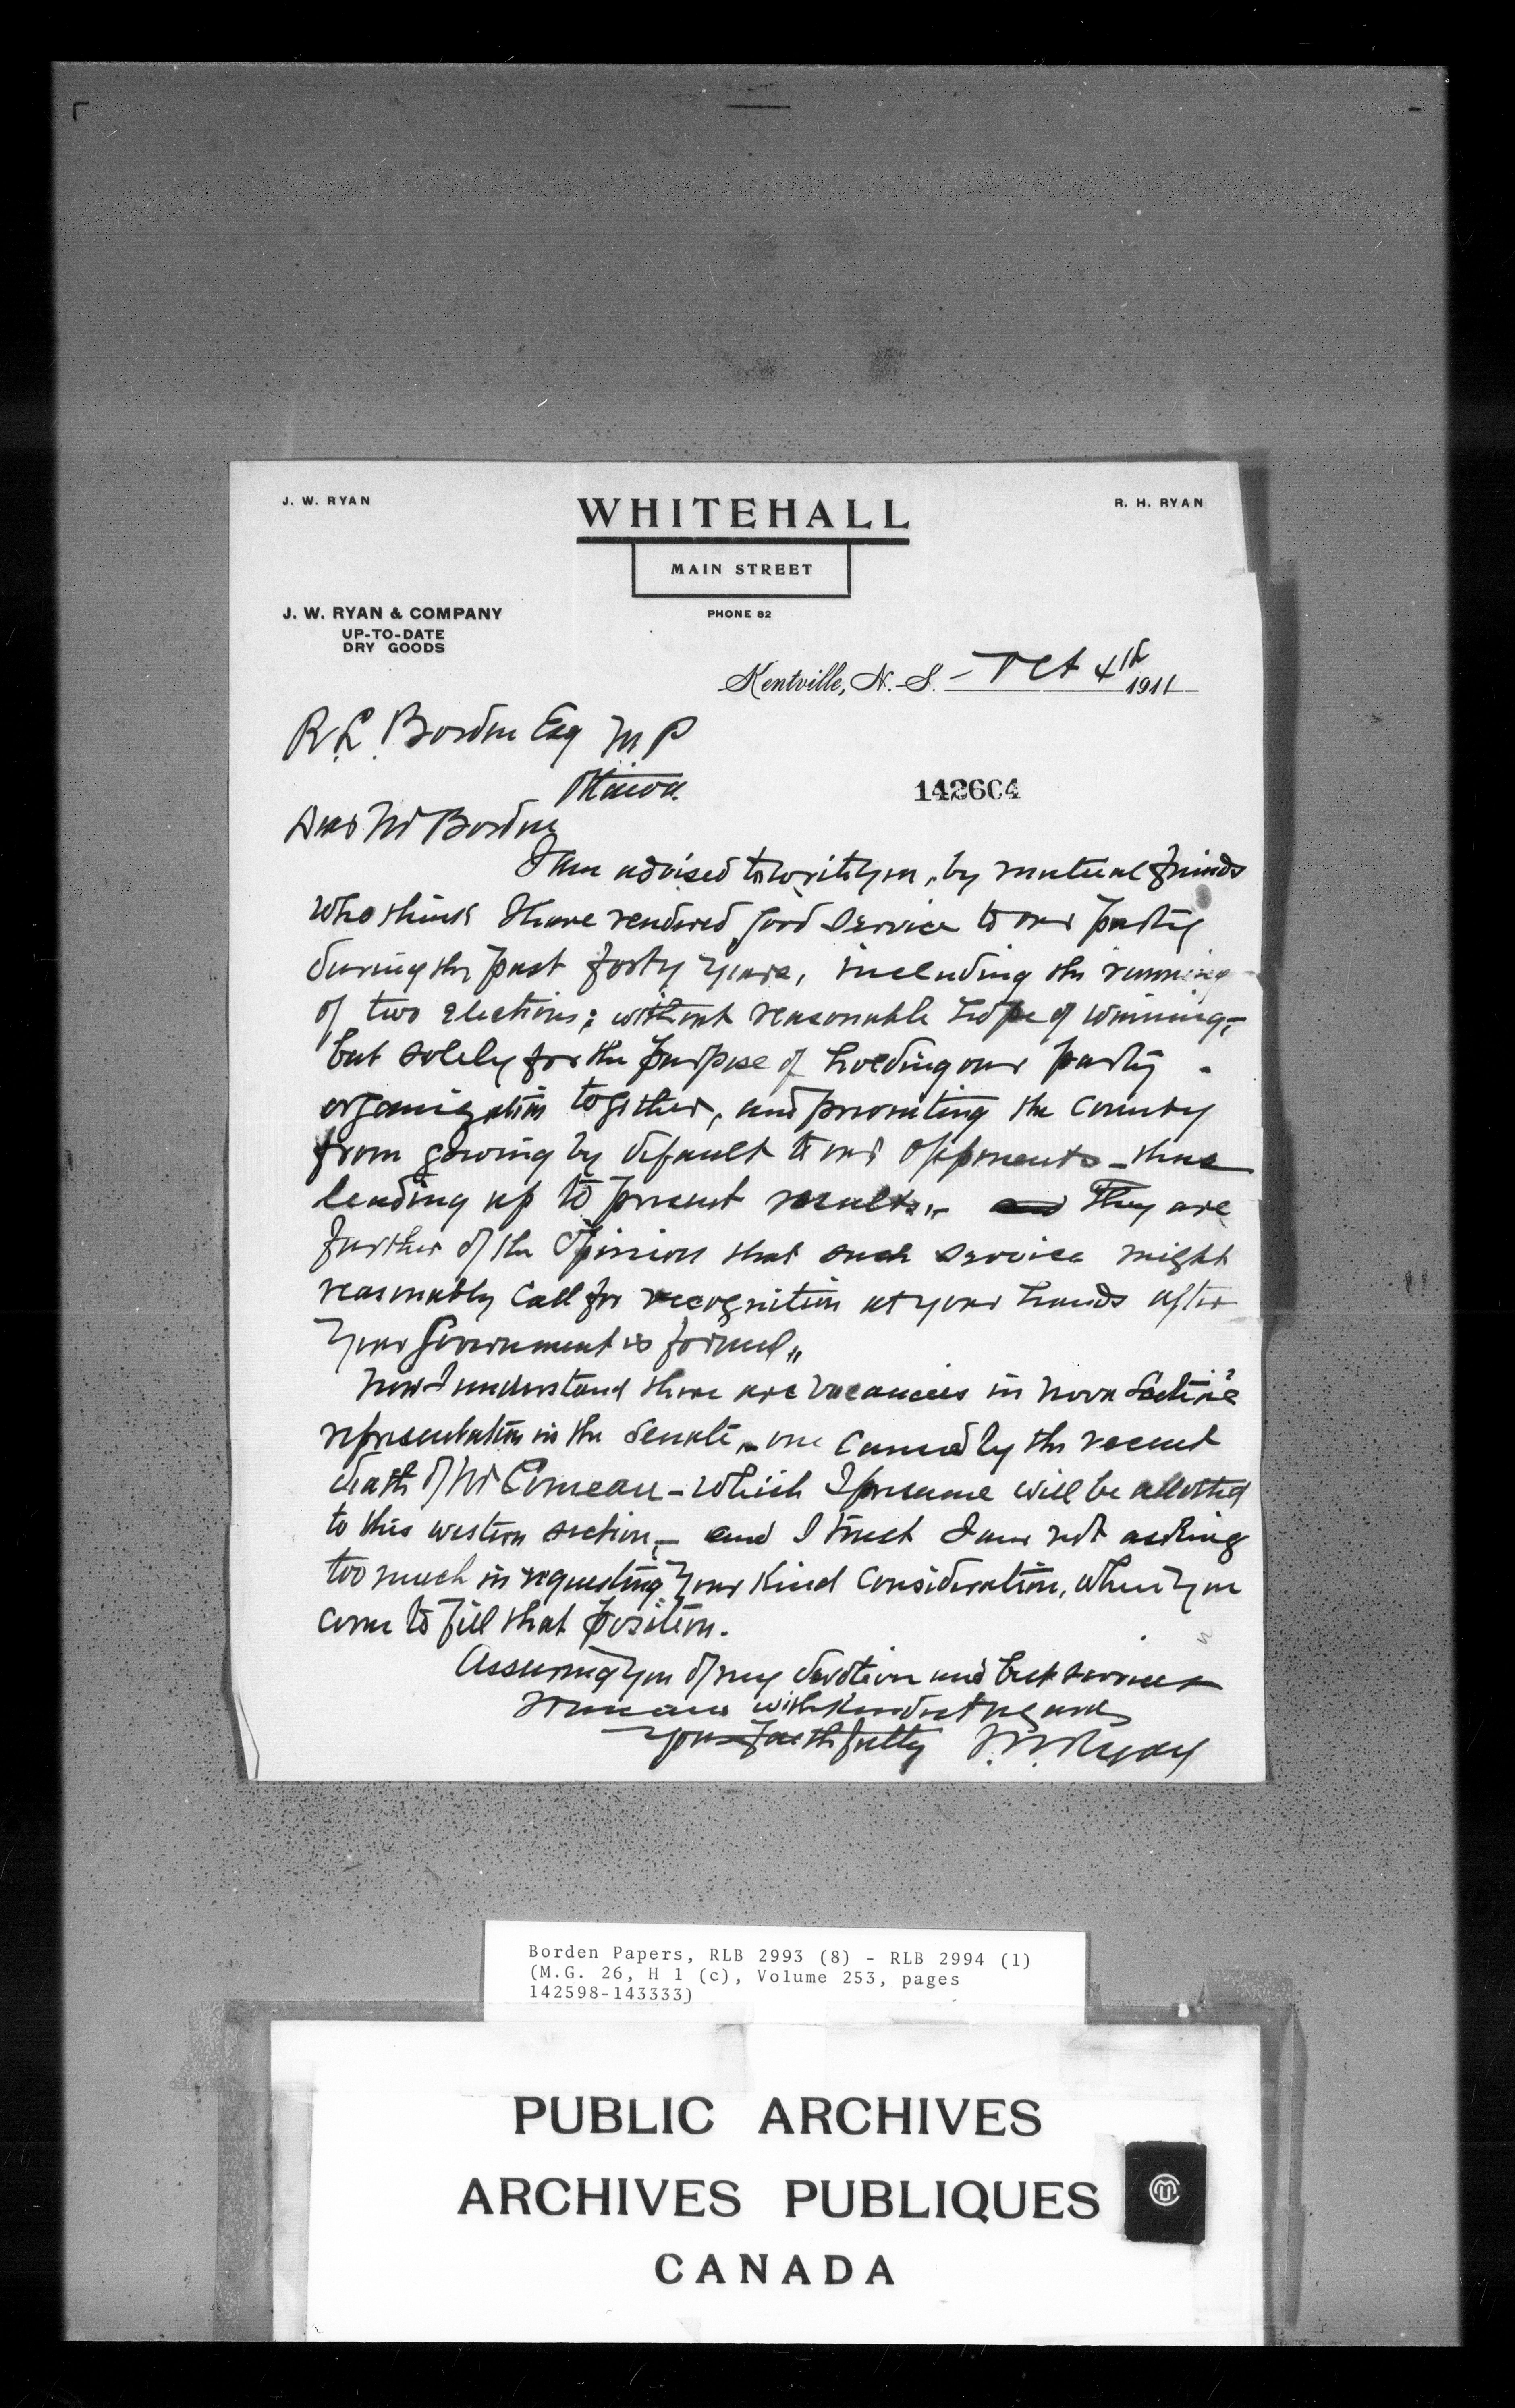 J. W. RYAN
WHITEHALL
R. H. RYAN
MAIN STREET
PHONE 82
J. W. RYAN & COMPANY
UP-TO-DATE
DRY GOODS
Kentville, N. S. - Oct 4th 1911
R. L. Borden Esq M P
Ottawa.
142604
Dear Mr Borden
I am advised to write you, by mutual friends
who think I have rendered good service to our party
during the past forty years, including the running
of two elections; without reasonable hope of winning;-
but solely for the purpose of holding our party
organization together, and preventing the county
from going by default to our opponents - thus
leading up to present results,,- and They are
further of the Opinion that such service might
reasonably call for recognition at your hands after
your Government is formed,,
Now I understand there are vacancies in Nova Scotia's
representation in the Senate, - one caused by the recent
death of Mr Comeau - which I presume will be allotted
to this western section, - and I trust I am not asking
too much in requesting your kind consideration, when you
come to fill that position.
Assuring you of my devotion and best services
I remain with kindest regards
Yours faithfully J. W. Ryan
Borden Papers, RLB 2993 (8) - RLB 2994 (1)
(M.G. 26, H 1 (c), Volume 253, pages
142598-143333)
PUBLIC ARCHIVES
ARCHIVES PUBLIQUES
CANADA